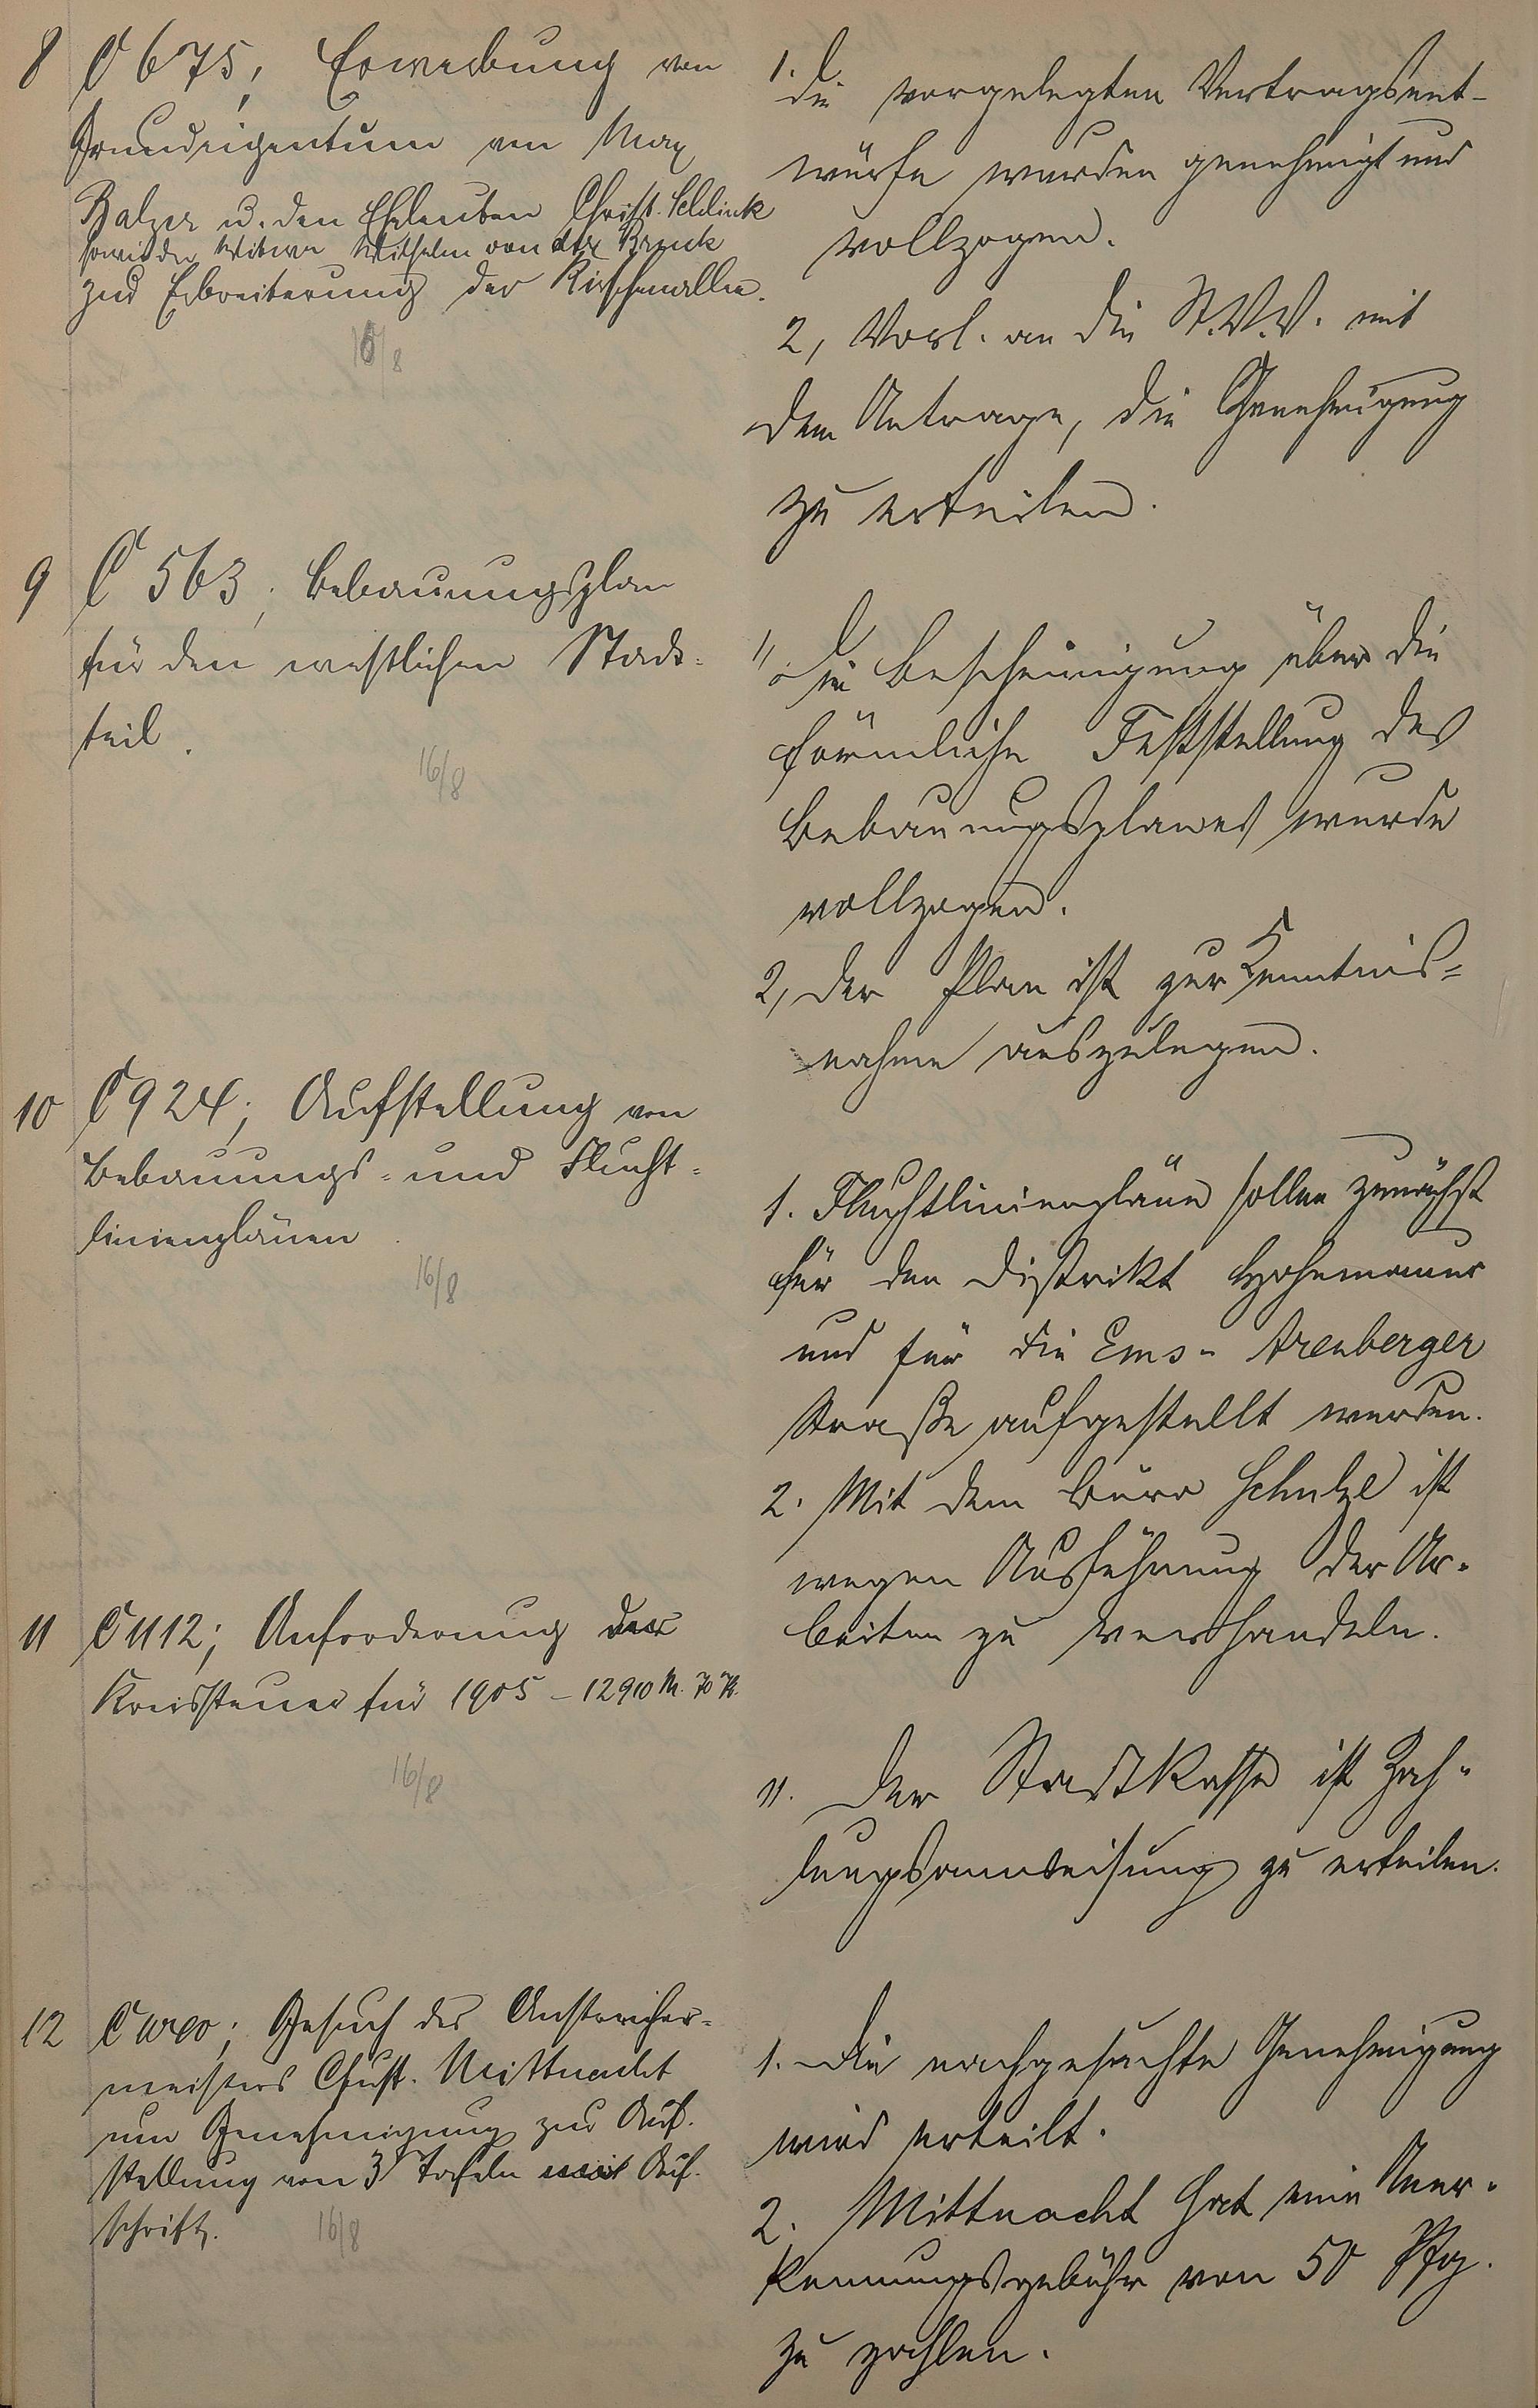 8 C 675, Erwerbung von
Grundeigentum von Max
Balzer u. den Eheleuten Christ. Schlink
sowie der Witwe Wilhelm von der Bruck
zur Erbreiterung der Kirschenallee.
16/8
1. Die vorgelegten Vertragsent-
würfe wurden genehmigt und
vollzogen.
2, Vorl. an die St.V.V. mit
dem Antrage, die Genehmigung
zu erteilen.
9 C 563, Bebauungsplan
für den westlichen Stadt-
teil.
16/8
1, Die Bescheinigung über die
förmliche Feststellung des
Bebauungsplanes wurde
vollzogen.
2, Der Plan ist zur Kenntnis=
nahme auszulegen.
10 C 924; Aufstellung von
Bebauungs- und Flucht-
linienplänen.
16/8
1. Fluchtlinienpläne sollen zunächst
für den Distrikt Hohemauer
und für die Ems- Arenberger
Straße aufgestellt werden.
2. Mit dem Büro Schulze ist
wegen Ausführung der Ar-
beiten zu verhandeln.
11 C 1112; Anforderung der
Kreissteuer für 1905 - 12910 M. 70 Pf.
16/8
11. Der Stadtkasse ist Zah-
lungsanweisung zu erteilen.
12 C; Gesuch des Anstreicher-
meisters Chust. Mittnacht
um Genehmigung zur Auf-
stellung von 3 Tafeln mit Auf-
schrift.
16/8
1. Die nachgesuchte Genehmigung
wird erteilt.
2. Mittnacht hat eine Aner-
kennungsgebühr von 50 Pfg.
zu zahlen.